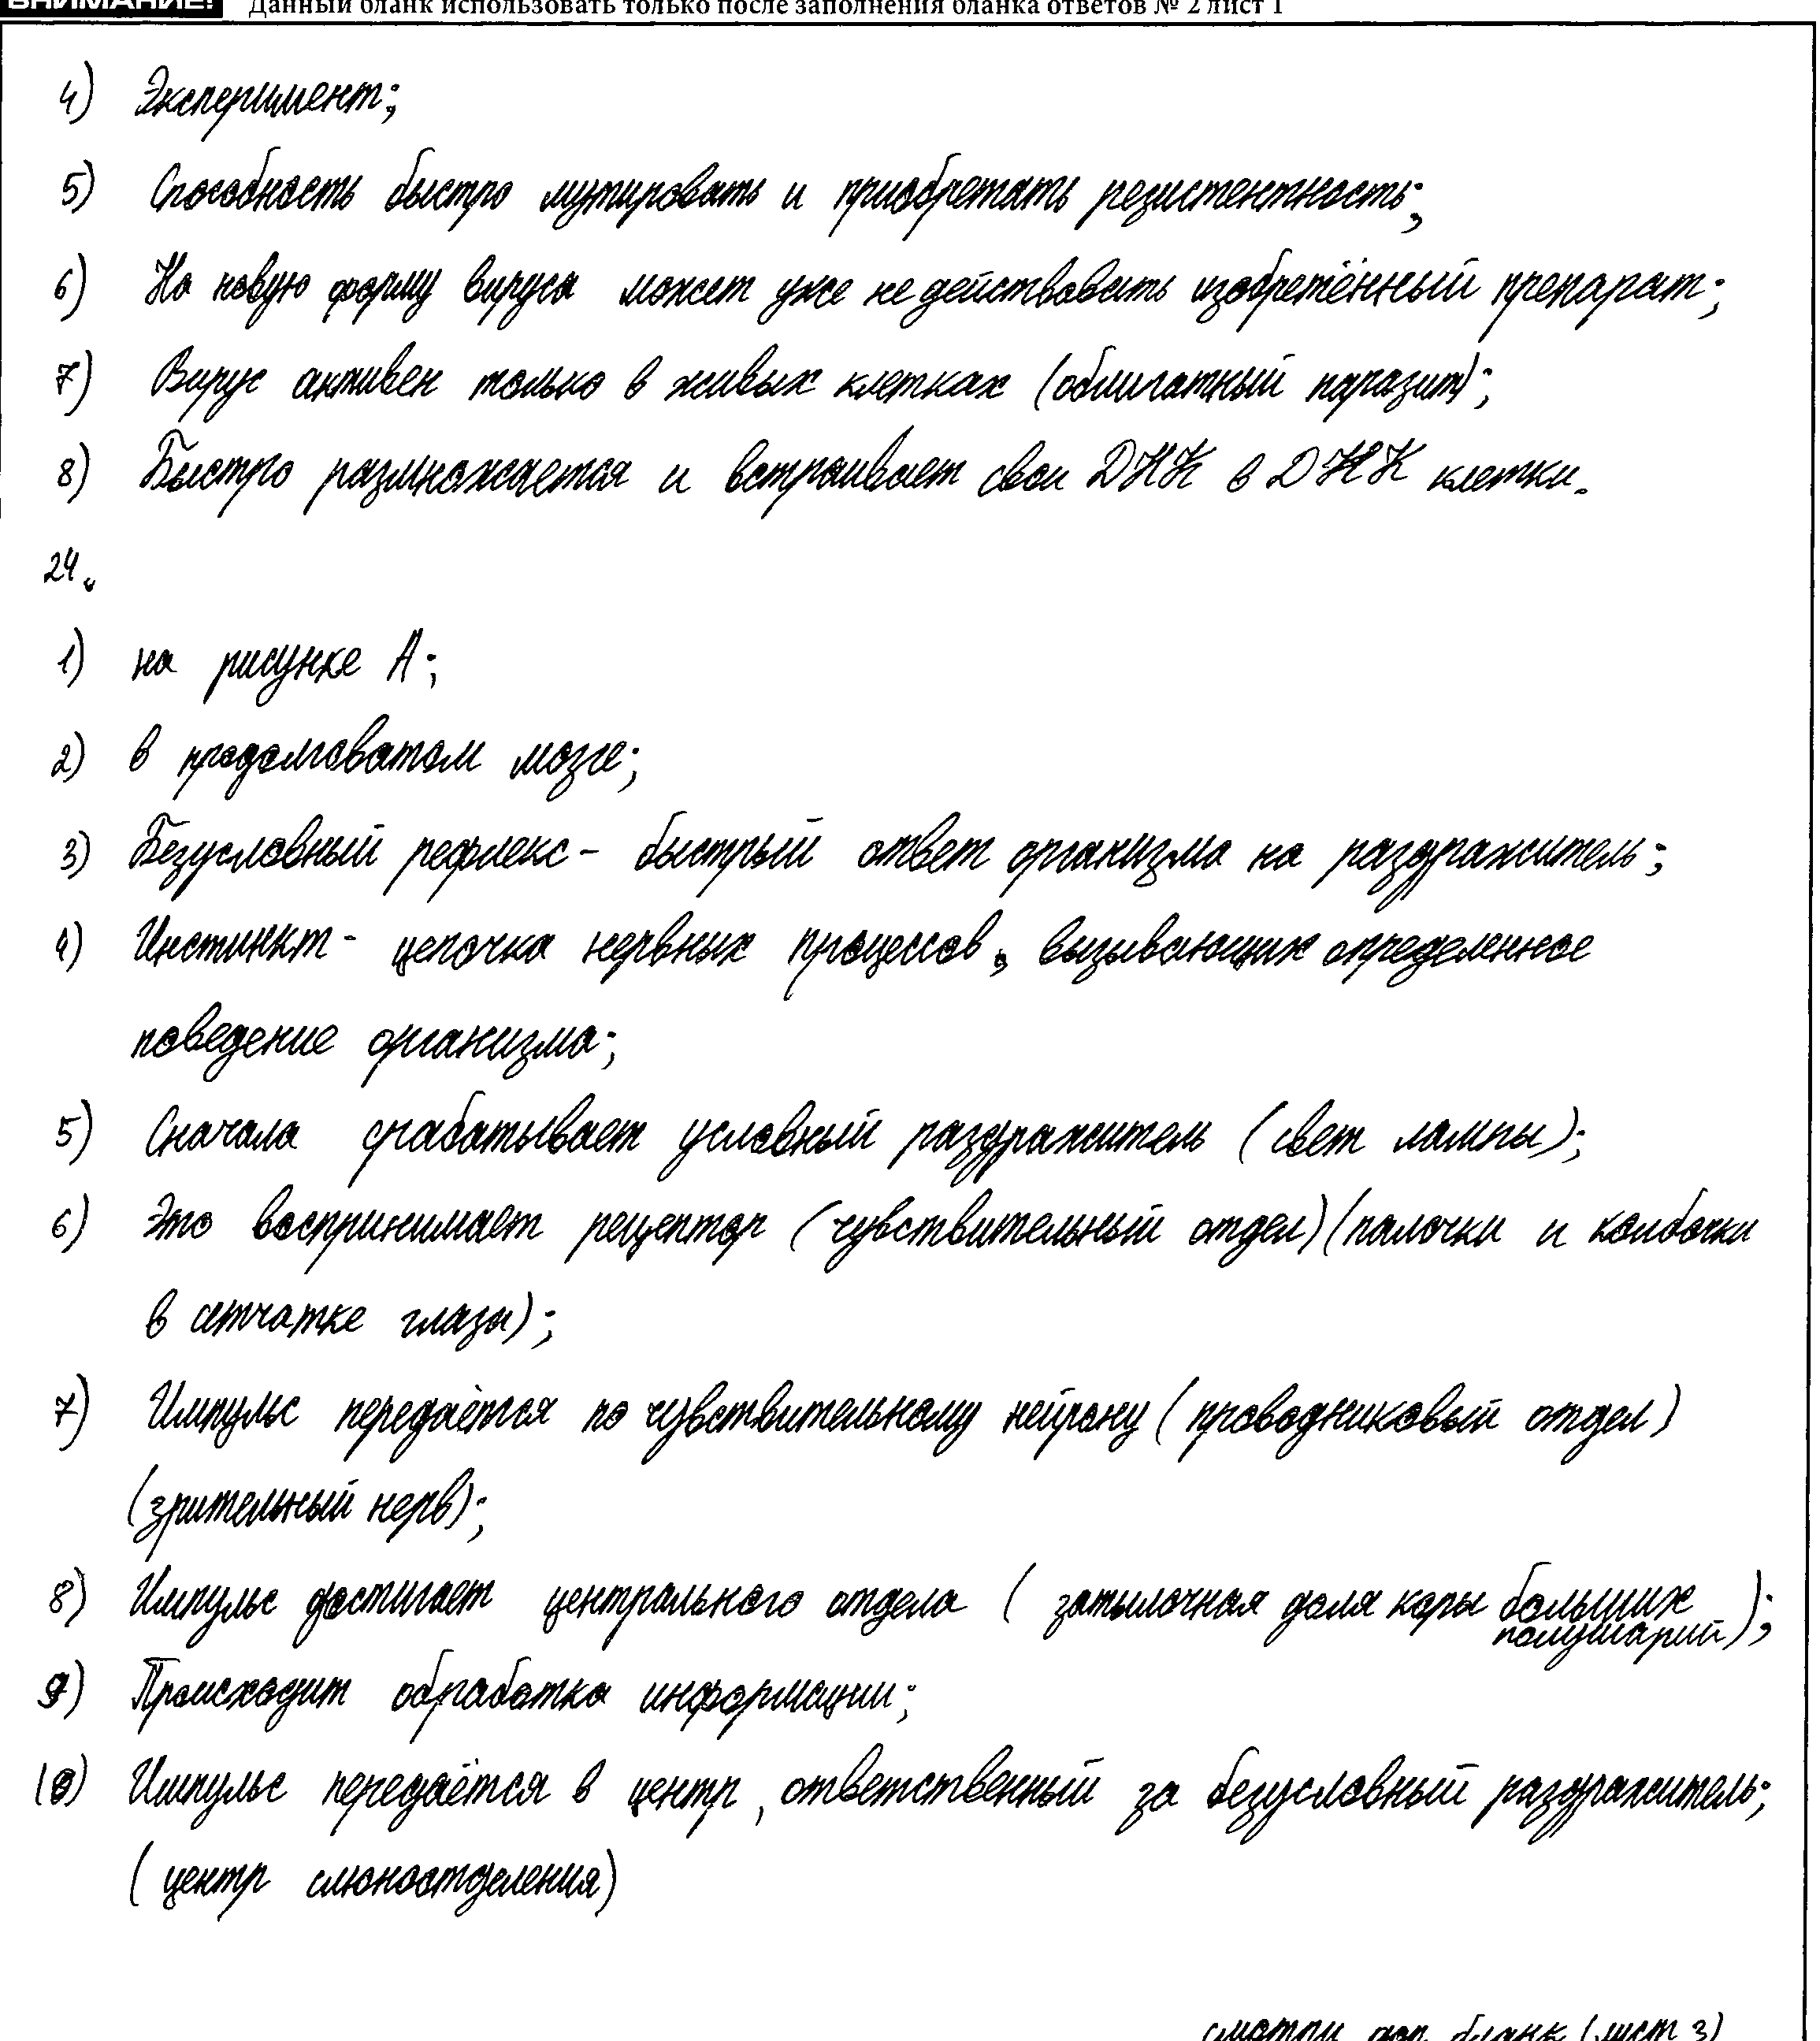 ВНИМАНИЕ! Данный бланк использовать только после заполнения бланка ответов № 2 лист 1
4) Эксперимент;
5) Способность быстро мутировать и приобретать резистентность;
6) На новую форму вируса может уже не действовать изобретённый препарат;
7) Вирус активен только в живых клетках (облигатный паразит);
8) Быстро размножается и встраивает свои ДНК в ДНК клетки.
24.
1) на рисунке А;
2) в продолговатом мозге;
3) Безусловный рефлекс - быстрый ответ организма на раздражитель;
4) Инстинкт - цепочка нервных процессов, вызывающих определенное
поведение организма;
5) Сначала срабатывает условный раздражитель (свет лампы);
6) Это воспринимает рецептор (чувствительный отдел) (палочки и колбочки
в сетчатке глаза);
7) Импульс передаётся по чувствительному нейрону (проводниковый отдел)
(зрительный нерв);
8) Импульс достигает центрального отдела (затылочная доля коры больших
полушарий);
9) Происходит обработка информации;
10) Импульс передаётся в центр, ответственный за безусловный раздражитель;
(центр слюноотделения)
смотри доп. бланк (лист 3)